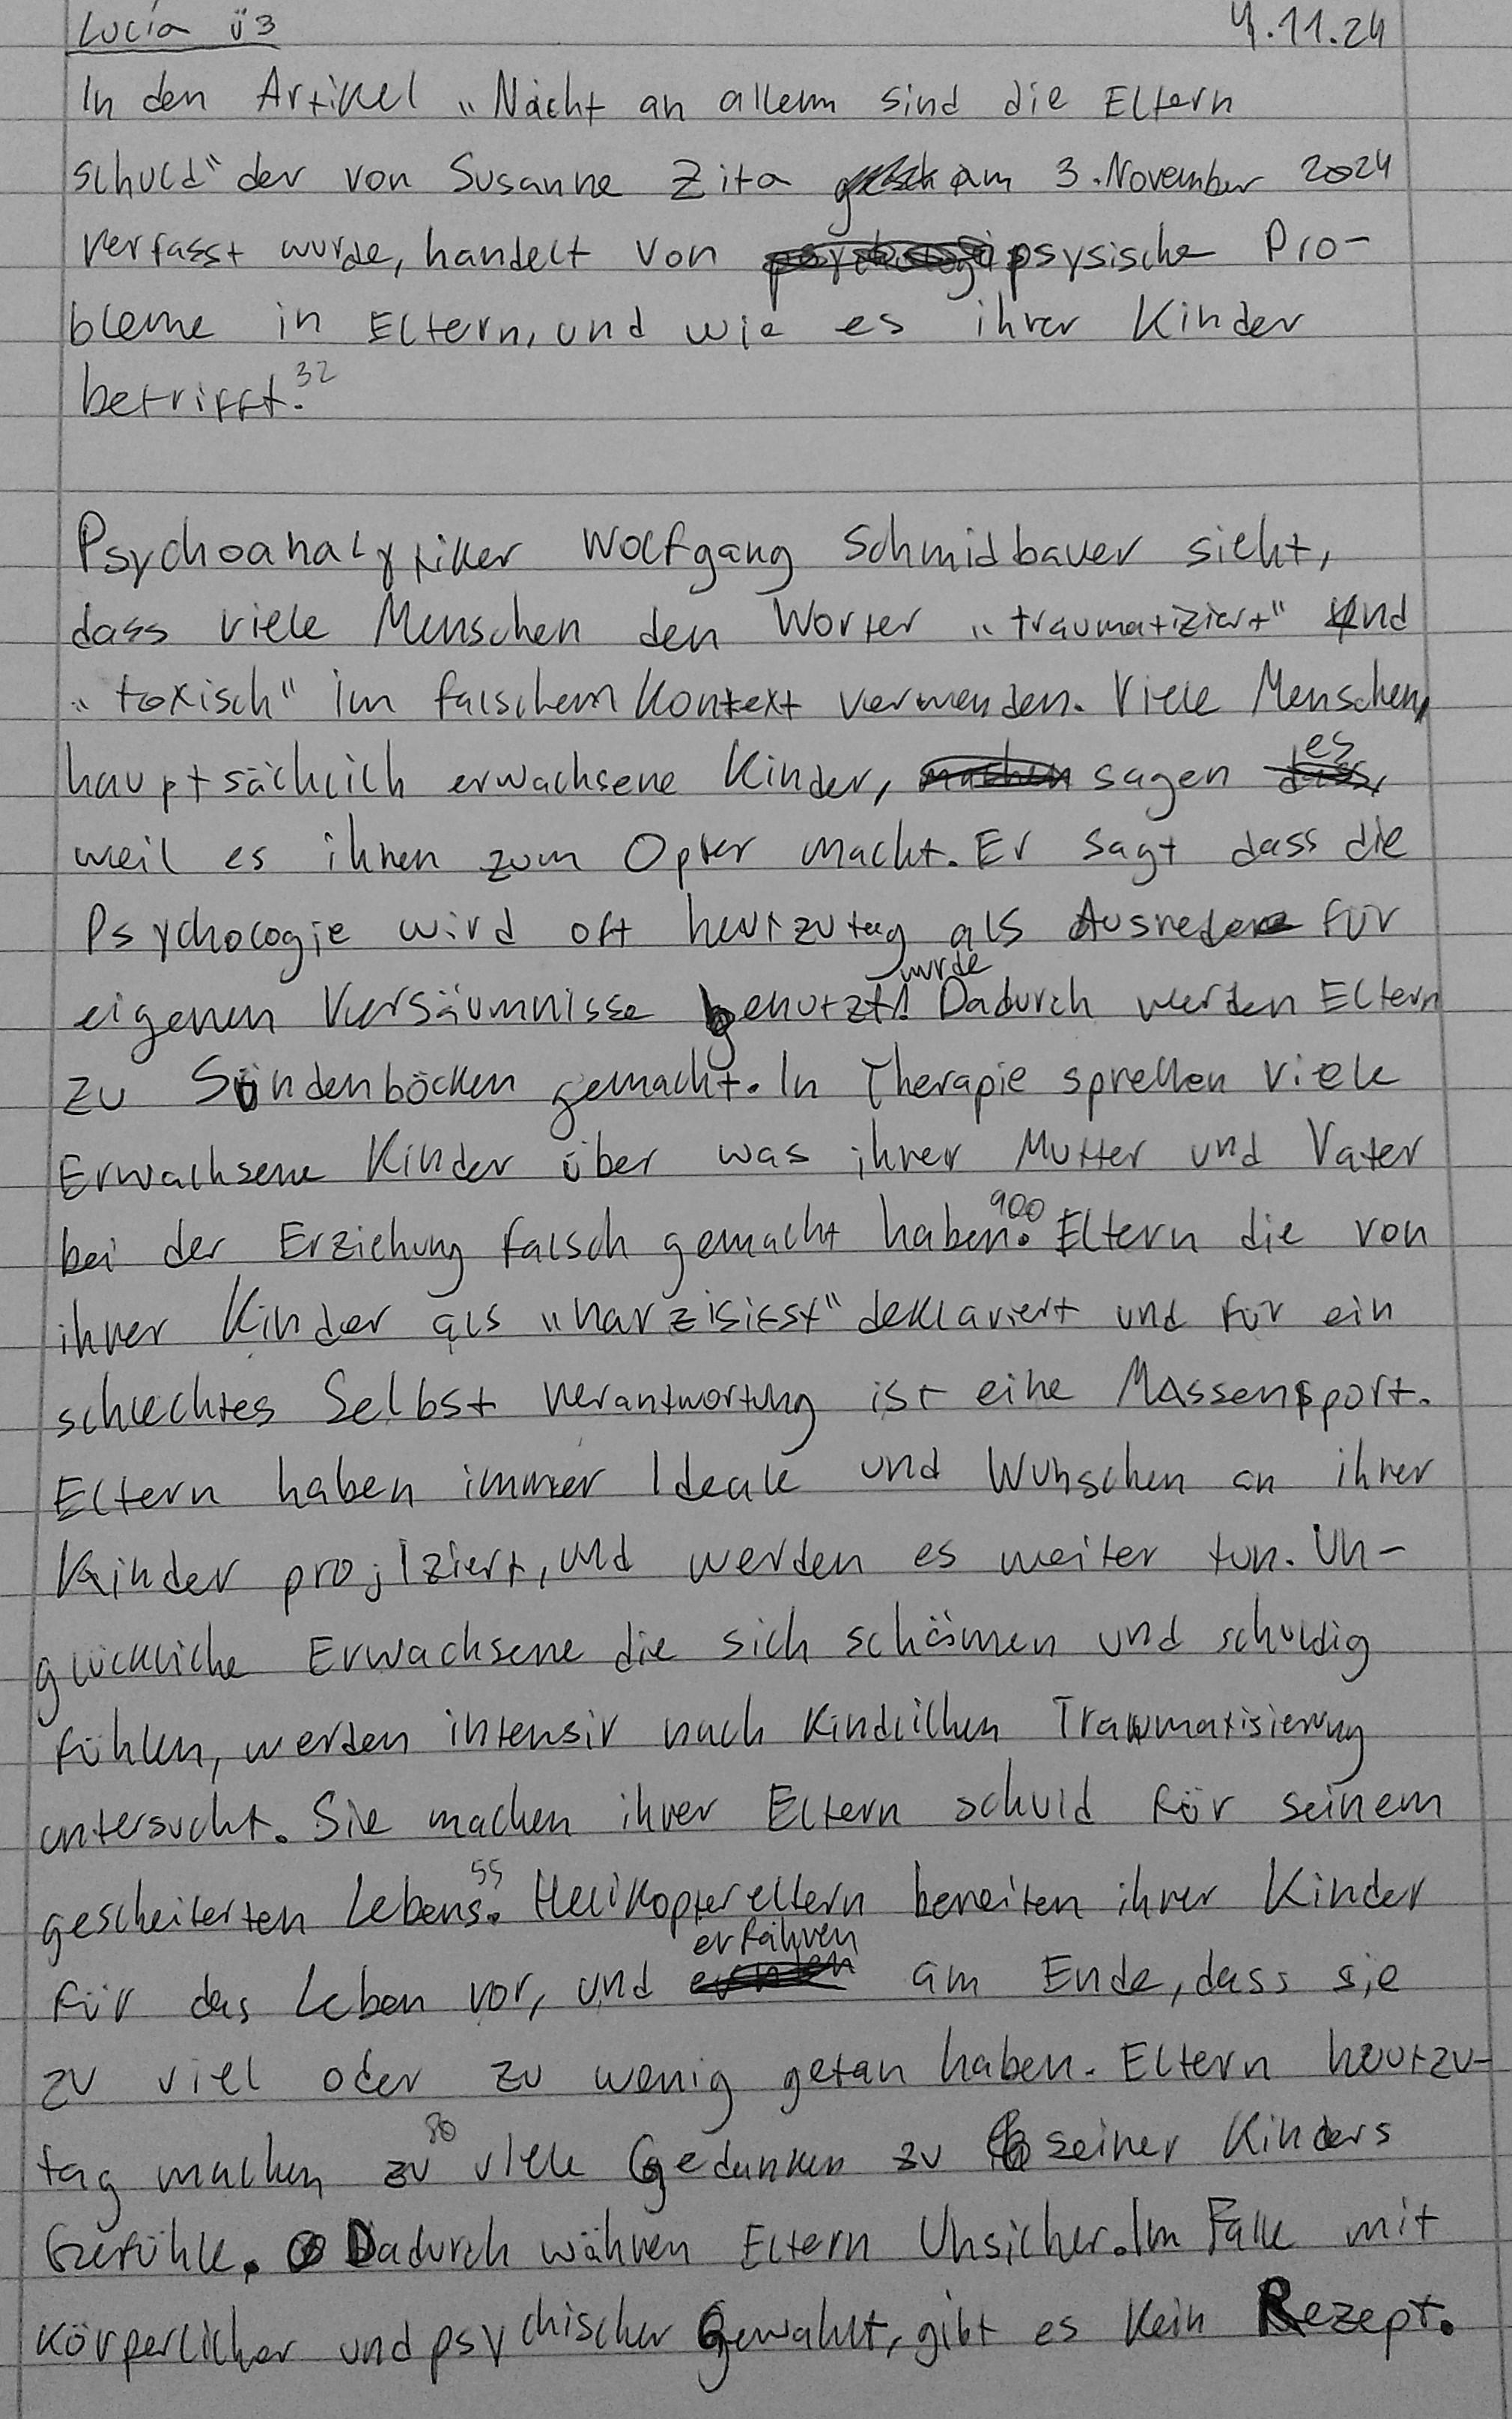 Lucía Ü3 4.11.24
In den Artikel „Nicht an allem sind die Eltern
schuld" der von Susanne Zita am 3. November 2024
verfasst wurde, handelt von psysische Pro-
bleme in Eltern, und wie es ihrer Kinder
betrifft. 32
Psychoanalytiker Wolfgang Schmidbauer sieht,
dass viele Menschen den Worter „traumatiziert" und
„toxisch" im falschem Kontext verwenden. Viele Menschen,
hauptsächlich erwachsene Kinder, sagen es
weil es ihnen zum Opfer macht. Er sagt dass die
Psychologie wird oft heutzutag als Ausrede für
eigenen Versäumnisse benutzt wurde. Dadurch werden Eltern
zu Sündenböcken gemacht. In Therapie sprechen viele
Erwachsene Kinder über was ihrer Mutter und Vater
bei der Erziehung falsch gemacht haben. 900 Eltern die von
ihrer Kinder als „narzisisst" deklariert und für ein
schlechtes Selbst verantwortung ist eine Massensport.
Eltern haben immer Ideale und Wunschen an ihrer
Kinder projiziert, und werden es weiter tun. Un-
glückliche Erwachsene die sich schämen und schuldig
fühlen, werden intensiv nach kindlichen Traumatisierung
untersucht. Sie machen ihrer Eltern schuld für seinem
gescheiterten Lebens. 55 Helikoptereltern bereiten ihrer Kinder
für das Leben vor, und erfahren am Ende, dass sie
zu viel oder zu wenig getan haben. Eltern heutzu-
tag machen zu 80 viele Gedanken zu seiner Kinders
Gefühle. Dadurch währen Eltern Unsicher. Im Falle mit
körperlicher und psychischer Gewahlt, gibt es kein Rezept.